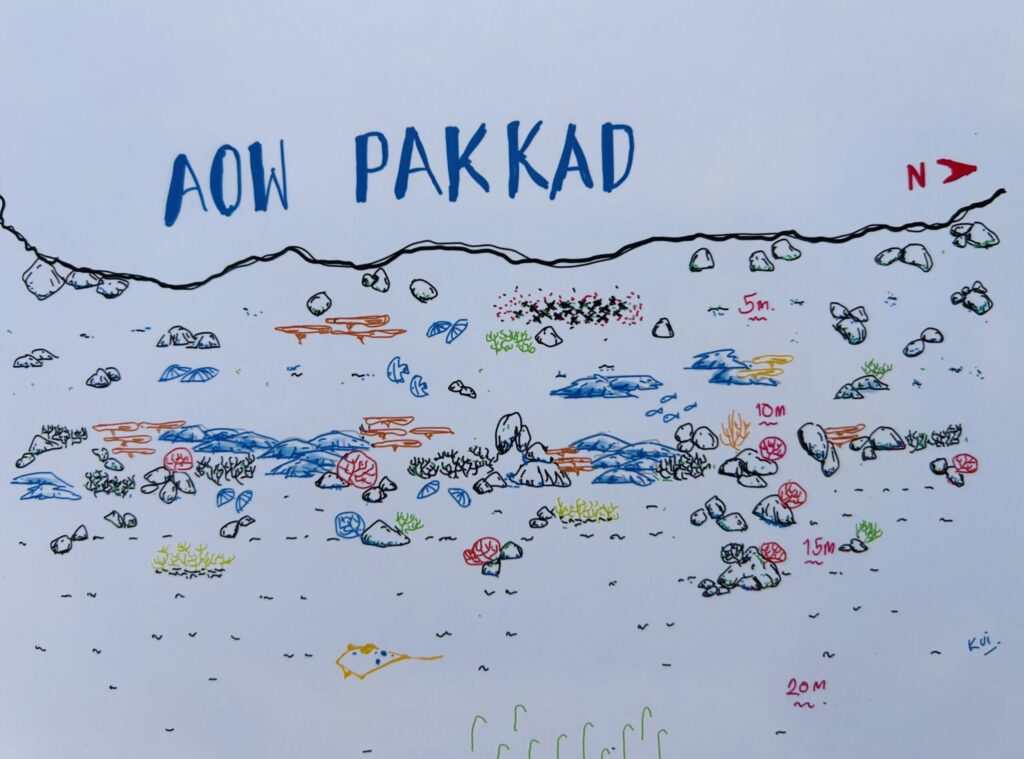 AOW PAKKAD
N
5m
10m
15m
Kui.
20m